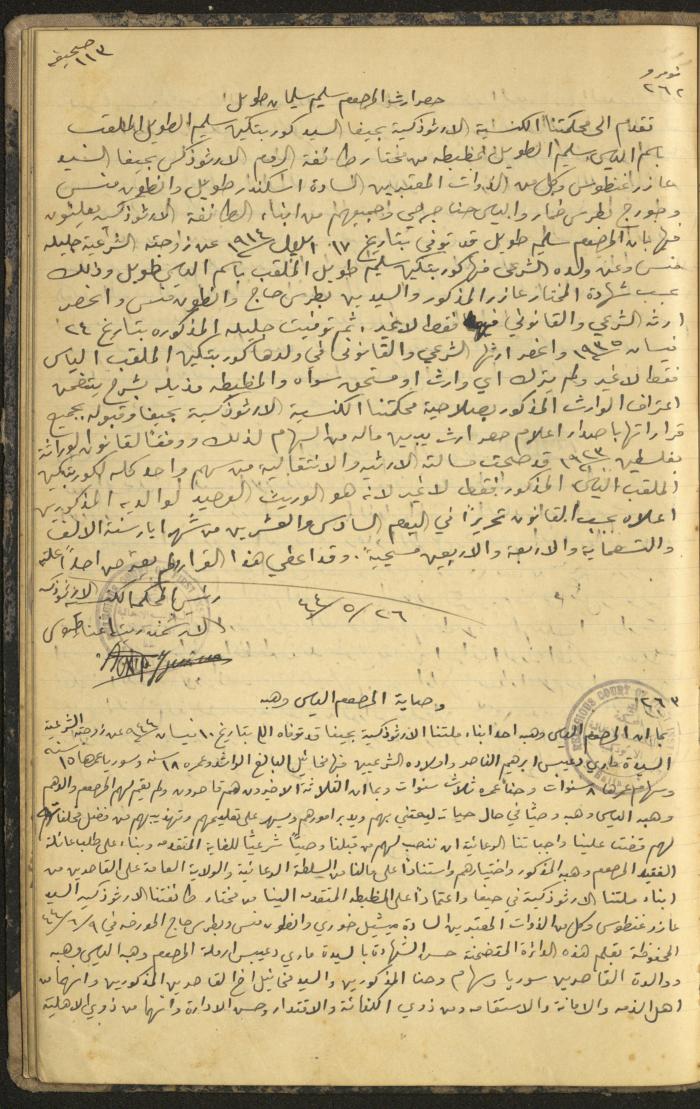 صحيفه
١١٣
نومرو
٢٦٢
حصر ارث المرحوم سليم سليمان طويل
تقدم الى محكمتنا الكنسية الارثوذكسية بحيفا السيد كوربتكين سليم الطويل الملقب
باسم الياس سليم الطويل بمظبطه من مختار طائفة الروم الارثوذكس بحيفا السيد
عازر غنطوس وكل من الذوات المعتبرين السادة اسكندر طويل وانطون منسى
وجورج بطرس خبار والياس حنا جرجي وجميعهم من ابناء الطائفة الارثوذكسية يعلنون
فيها بان المرحوم سليم طويل قد توفي بتاريخ ١٧ ايلول ١٩١٤ عن زوجته الشرعية جليله
منسى وعن ولده الشرعي فيها كوربتكين سليم طويل الملقب باسم الياس طويل وذلك
بحسب شهادة المختار عازر المذكور والسيدين بطرس حاج وانطون منسى وانحصر
ارثه الشرعي والقانوني فيهما فقط لا غير، ثم توفيت جليله المذكوره بتاريخ ٢٤
نيسان ١٩٣٥ وانحصر ارثها الشرعي والقانوني في ولدها كوربتكين الملقب الياس
فقط لا غير ولم يترك اي وارث او مستحق سواه والمظبطه مذيله بشرح يتضمن
اعتراف الوارث المذكور بصلاحية محكمتنا الكنسية الارثوذكسية بحيفا وقبوله بجميع
قراراتها باصدار اعلام حصر ارث يبين ماله من السهام لذلك ووفقا لقانون الوراثة
بفلسطين ١٩٢٣ قد صحت مسالته الارثيه والانتقاليه من سهم واحد كله لكوربتكين
الملقب الياس المذكور فقط لا غير لانه هو الوريث الوحيد لوالديه المذكورين
اعلاه بحسب القانون تحريرًا في اليوم السادس والعشرين من شهر ايار سنة الالف
والتسعماية والاربعة والاربعين مسيحية. وقد اعطي هذا القرار ولم يعترض احدًا عليه
٢٦/٥/٤٤
رئيس المحكمة الكنسية الارثوذكسية
الارشمندريت اغناطيوس
٢٦٣
وصاية المرحوم الياس وهبه
بما ان المرحوم الياس وهبه احد ابناء ملتنا الارثوذكسية بحيفا قد توفاه الله بتاريخ ١٠ نيسان ٩٤٤ عن زوجته الشرعية
السيدة ماري دعيبس ابرهيم الناصر واولاده الشرعيين فيها مخائيل البالغ الراشد وعمره ١٨ سنه وسوريا عمرها ١٥ سنه
وسهام عمرها ٨ سنوات وحنا عمره ثلاث سنوات وبما ان الثلاثة الاخيرون هم قاصرون ولم يقيم لهم المرحوم والدهم
وهبه الياس وهبه وصيًا في حال حياته ليعتني بهم ويدير امورهم ويسهر على تعليمهم وتهذيبهم من فضل مخلفاته
لهم قضت علينا واجباتنا الرعائية ان ننصب لهم من قبلنا وصيًا شرعيًا للغاية المتقدمه وبناء على طلب عائلة
الفقيد المرحوم وهبه المذكور واختيارهم واستنادًا على مالنا من السلطة الرعائية والولاية العامة على القاصرين من
ابناء ملتنا الارثوذكسية في حيفا واعتمادًا على المظبطه المتقدمه الينا من مختار طائفتنا الارثوذكسيه السيد
عازر غنطوس وكل من الذوات المعتبرين السادة ميشيل خوري وانطون منسى وبطرس حاج المورخه في ٩/٦/٤٤
المحفوظة بقلم هذه الدائرة المتضمنة حسن الشهادة بالسيدة ماري دعيبس ارملة المرحوم وهبه الياس وهبه
ووالدة القاصرين سوريا وسهام وحنا المذكورين والسيد مخائيل اخ القاصرين المذكورين وانهما من
اهل الذمه والامانة والاستقامه ومن ذوي الكفائة والاقتدار وحسن الادارة وانهما من ذوي الاهلية